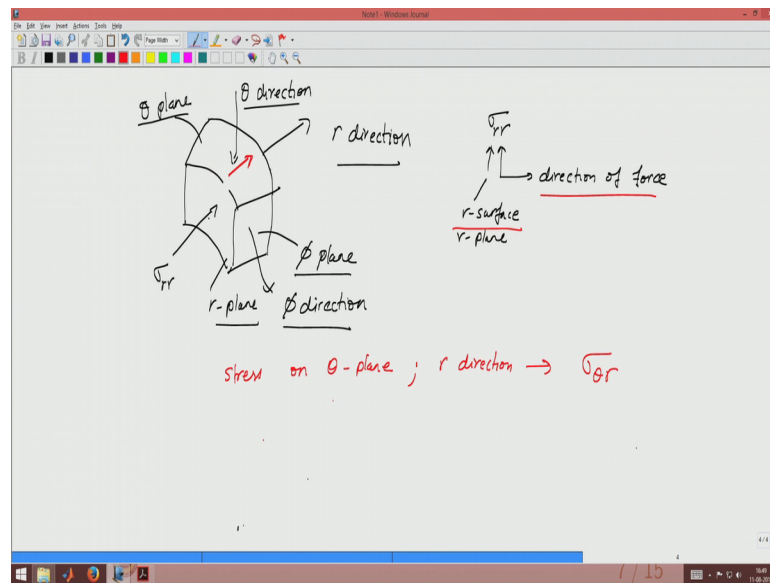 Note1 - Windows Journal
File Edit View Insert Actions Tools Help
Page Width
B I
θ direction
θ plane
r direction
σrr
direction of force
r-surface
r-plane
ϕ plane
σrr
r-plane
ϕ direction
stress on θ-plane ; r direction → σθr
4/4
4
7 / 15
16:49